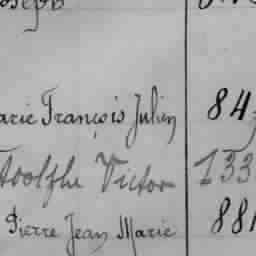 Joseph
Marie François Julien 84
Adolphe Victor 133
Pierre Jean Marie 881